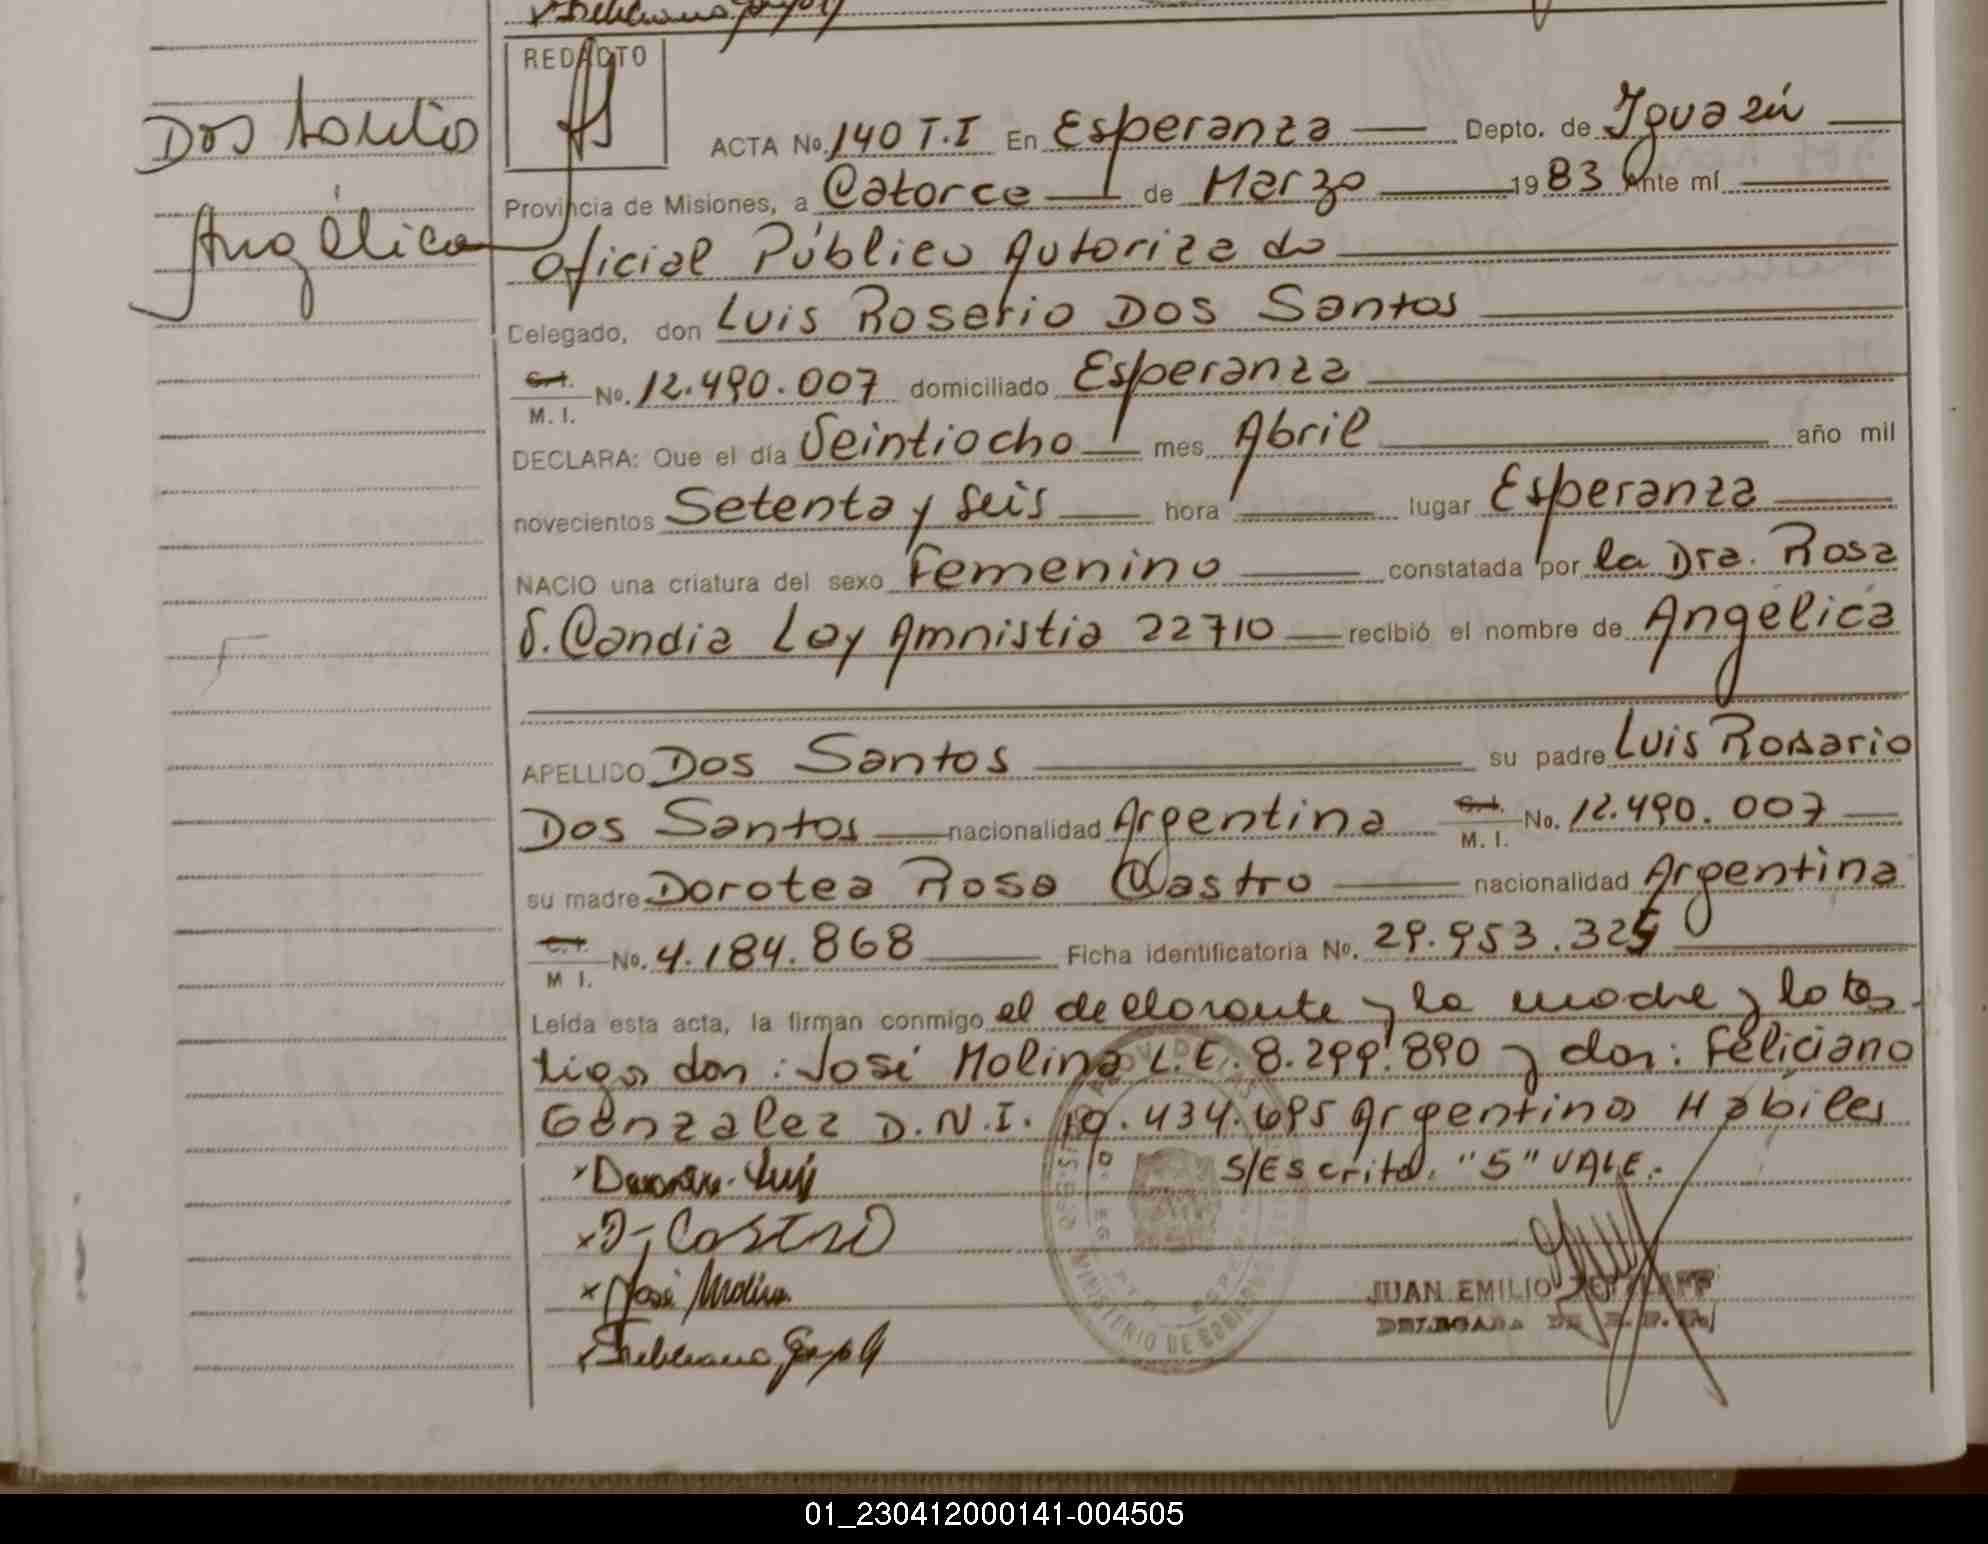 REDACTO
Dos Santos
Angélica
ACTA No. 140 T.I En Esperanza Depto. de Iguazú
Provincia de Misiones, a Catorce de Marzo 1983 Ante mí
Oficial Público Autorizado
Delegado, don Luis Roserio Dos Santos
C.I. M. I. No. 12.490.007 domiciliado Esperanza
DECLARA: Que el día Veintiocho mes Abril año mil
novecientos Setenta y Seis hora lugar Esperanza
NACIO una criatura del sexo Femenino constatada por la Dra. Rosa
V. Candia Ley Amnistia 22710 recibió el nombre de Angélica
APELLIDO Dos Santos su padre Luis Rosario
Dos Santos nacionalidad Argentina C.I. M. I. No. 12.490.007
su madre Dorotea Rosa Castro nacionalidad Argentina
C.I. M I. No. 4.184.868 Ficha identificatoria No. 29.953.325
Leída esta acta, la firman conmigo el declarante y la madre y lo tes-
tigos don: José Molina L.E. 8.299.890 y don: Feliciano
Gonzalez D.N.I. 10.434.695 Argentinos Hábiles
Luis S/Escrito. "5" VALE.
x D. Castro
x José Molina
JUAN EMILIO
DELEGADA DE
MINISTERIO DE GOBIERNO
01_230412000141-004505